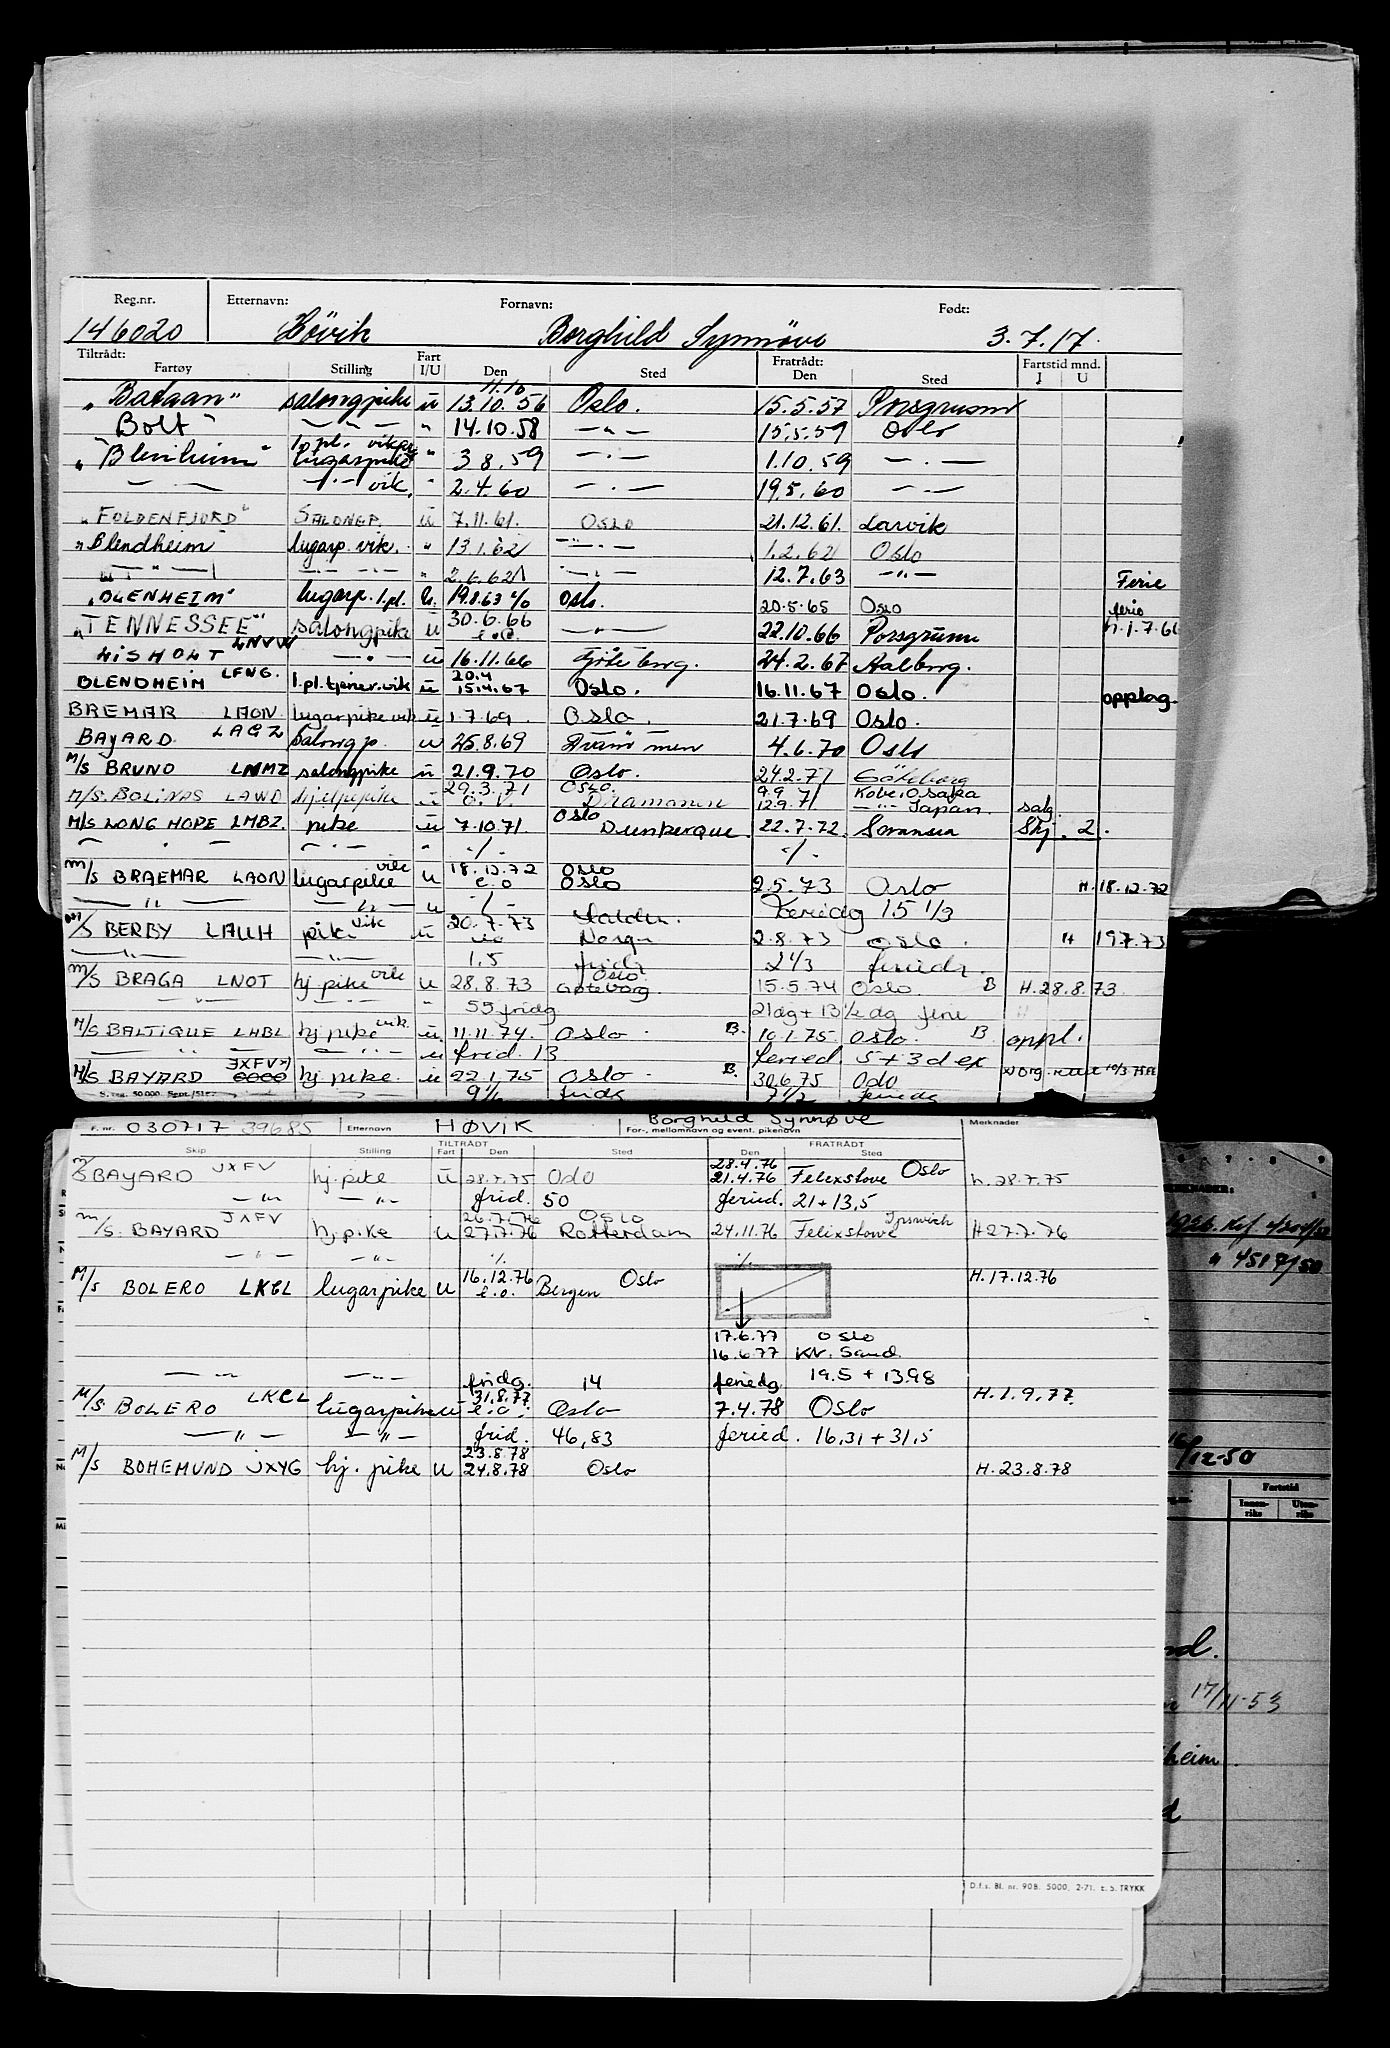 Reg.nr. Etternavn: Fornavn: Født:
146020 Hövik Borghild Synnöve 3.7.17.
Tiltrådt: Fratrådt:
Fartøy Stilling Fart I/U Den Sted Den Sted Fartstid mnd. I U
11.10
„Bataan" salongpike u 13.10.56 Oslo. 15.5.57 Porsgrunn
Bolt" — " — " 14.10.58 — " — 15.5.59 Oslo
1.pl. vikar
„Blenheim" lugarpike " 3 8.59 — . — 1.10.59 — . —
— . — — " — vik. " 2.4.60 — . — 19.5.60 — . —
„FOLDENFJORD" SALONGP. u 7.11.61. OSLO 21.12.61. Larvik
„Blendheim lugarp. vik. " 13.1.62 — " — 1.2.62 Oslo
— " — — " — " 2.6.62 — " — 12.7.63 — " — Ferie
„BLENHEIM" lugarp. 1.pl. u. 19.8.63 Oslo. 20.5.65 Oslo ferio
„TENNESSEE" salongpike u 30.6.66 e.o. — " — 22.10.66 Porsgrunn h.1.7.66
LISHOLT LNVW — " — u 16.11.66 Göteborg. 24.2.67 Aalborg.
20.4
BLENDHEIM LFNG. 1.pl.tjener.vik u 15.4.67 Oslo. 16.11.67 Oslo. opplag.
BREMAR LAON lugarpike vik u 1.7.69. Oslo. 21.7.69 Oslo.
BAYARD LAGZ Salongp. u 25.8.69 Drammen 4.6.70 Oslo
M/S BRUNO LMMZ salongpike u 21.9.70 Oslo. 24.2.71 Göteborg
29.3.71 Oslo. 9.9 Kobe, Osaka
M/S. BOLINAS LAWD hjelpepike u Drammen 12.9.71 — " — Japan salg
Oslo
M/S LONG HOPE LMBZ. pike u 7.10.71. Dunkerque. 22.7.72. Swansea Skj. 2.
— " — — " — " -/- -/-
18.12.72 Oslo
M/S BRAEMAR LAON lugarpike vik u e.o Oslo 2.5.73 Oslo H.18.12.72
— " — — " — u -/- Feriedg 15 1/3
20.7.73 Halden.
M/S BERBY LAUH pike vik u Norge 2.8.73 Oslo. H 19.7.73
— " — — " — 1,5 fridg 2 1/3 feriedg.
Oslo
M/S BRAGA LNOT hj pike vik u 28.8.73 Göteborg. 15.5.74 Oslo. B H.28.8.73
— " — " 55 fridg 21dg + 13 1/2 dg ferie
M/S BALTIQUE LHBL hj pike vik. u. 11.11.74. Oslo. B. 10.1.75 Oslo. B oppl.
— " — — " — u frid. 13 feried. 5 + 3 d ex
JXFV x)
M/S BAYARD hj pike. u 22.1.75 Oslo. B. 30.6.75 Oslo
S. reg. 50.000. Sept./51 fridg 7 1/2 feriedg
F. nr. 030717 39685 Etternavn HØVIK For-, mellomnavn og event. pikenavn Borghild Synnøve Merknader
TILTRÅDT FRATRÅDT
Skip Stilling Fart Den Sted Den Sted
28.4.76 Oslo
M/S BAYARD JXFV hj. pike u 28.7.75 Oslo 21.4.76 Felixstowe h. 28.7.75
— " — — " — frid. 50 feried. 21 + 13,5
26.7.76 Oslo Ipswich
M/S. BAYARD JXFV hj. pike u 27.7.76 Rotterdam 24.11.76 Felixstowe H 27.7.76
— " — — " — -/- -/-
16.12.76 Oslo
M/S BOLERO LKCL lugarpike u e.o. Bergen H.17.12.76
17.6.77 Oslo
16.6.77 Kr. Sand.
— " — — " — fridg. 14 feriedg. 19.5 + 13.98
31.8.77
M/S. BOLERO LKCL lugarpike u e.o. Oslo 7.4.78 Oslo H.1.9.77.
— " — — " — frid. 46,83 feried. 16,31 + 31,5
23.8.78
M/S BOHEMUND JXYG hj. pike u 24.8.78 Oslo H.23.8.78
D.f.s. Bl. nr. 90B. 5000. 2-71. E.S. TRYKK
7 8 9
" 4517/50
/12-50
Fartstid
Innen-riks Uten-riks
17/11-53
heim